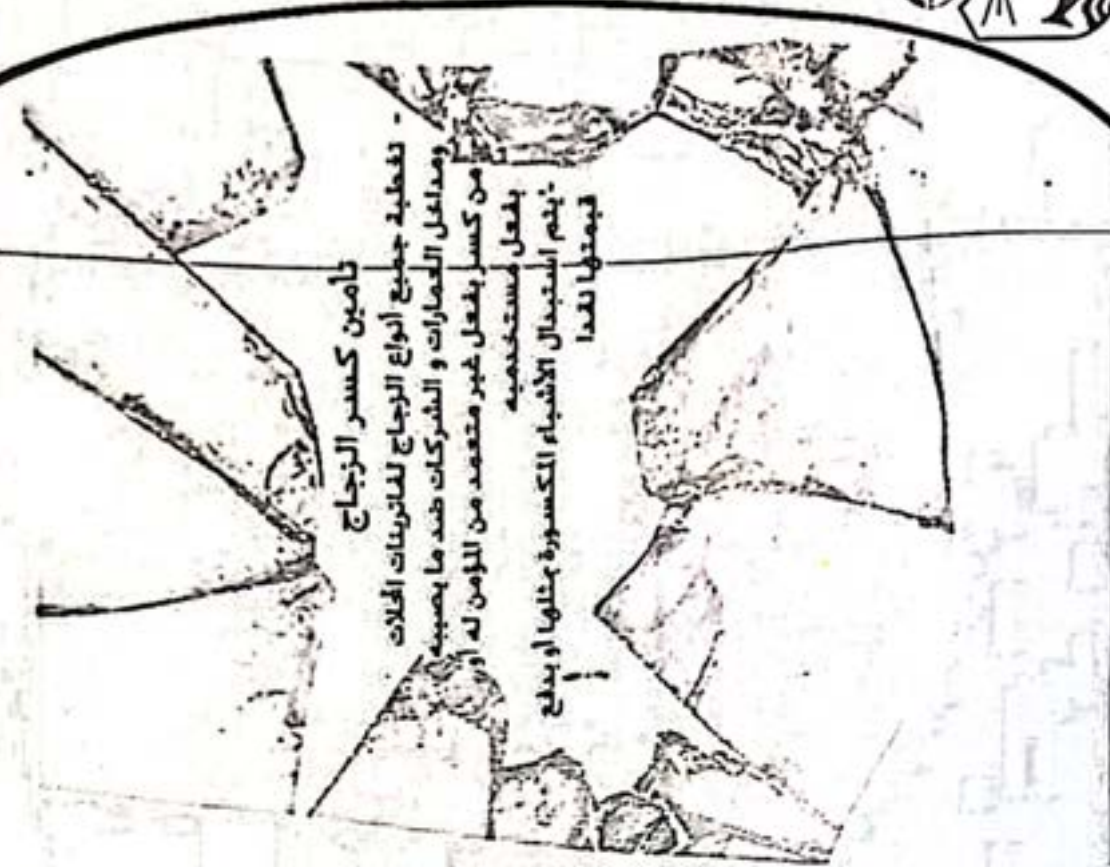 تأمين كسر الزجاج
- تغطية جميع أنواع الزجاج لفاترينات المحلات
ومداخل العمارات و الشركات ضد ما يصيبه
من كسر بفعل غير متعمد من المؤمن له أو
بفعل مستخدميه
- يتم استبدال الأشياء المكسورة بمثلها أو بدفع
قيمتها نقدا